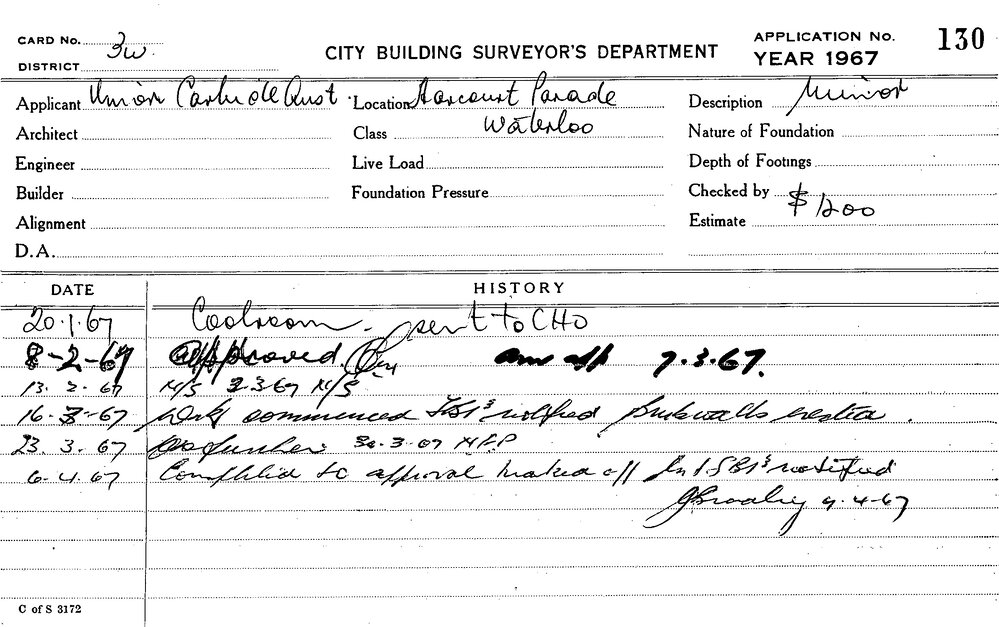 CARD No. 3w
CITY BUILDING SURVEYOR'S DEPARTMENT
APPLICATION No. 130
YEAR 1967
DISTRICT
Applicant Union Carbide Aust. Location Harcourt Parade Description Minor
Architect Class Waterloo Nature of Foundation
Engineer Live Load Depth of Footings
Builder Foundation Pressure Checked by
Alignment Estimate $1200
D.A.
DATE HISTORY
20.1.67 Coolroom. sent to CHO
8-2-67 approved 7.3.67.
13. 2. 67 N/S 2.3.67 N/S
16-3-67 Work commenced notified
23. 3. 67 No further 30.3.67
6.4.67 Completed to approval marked off notified
9.4.67
C of S 3172